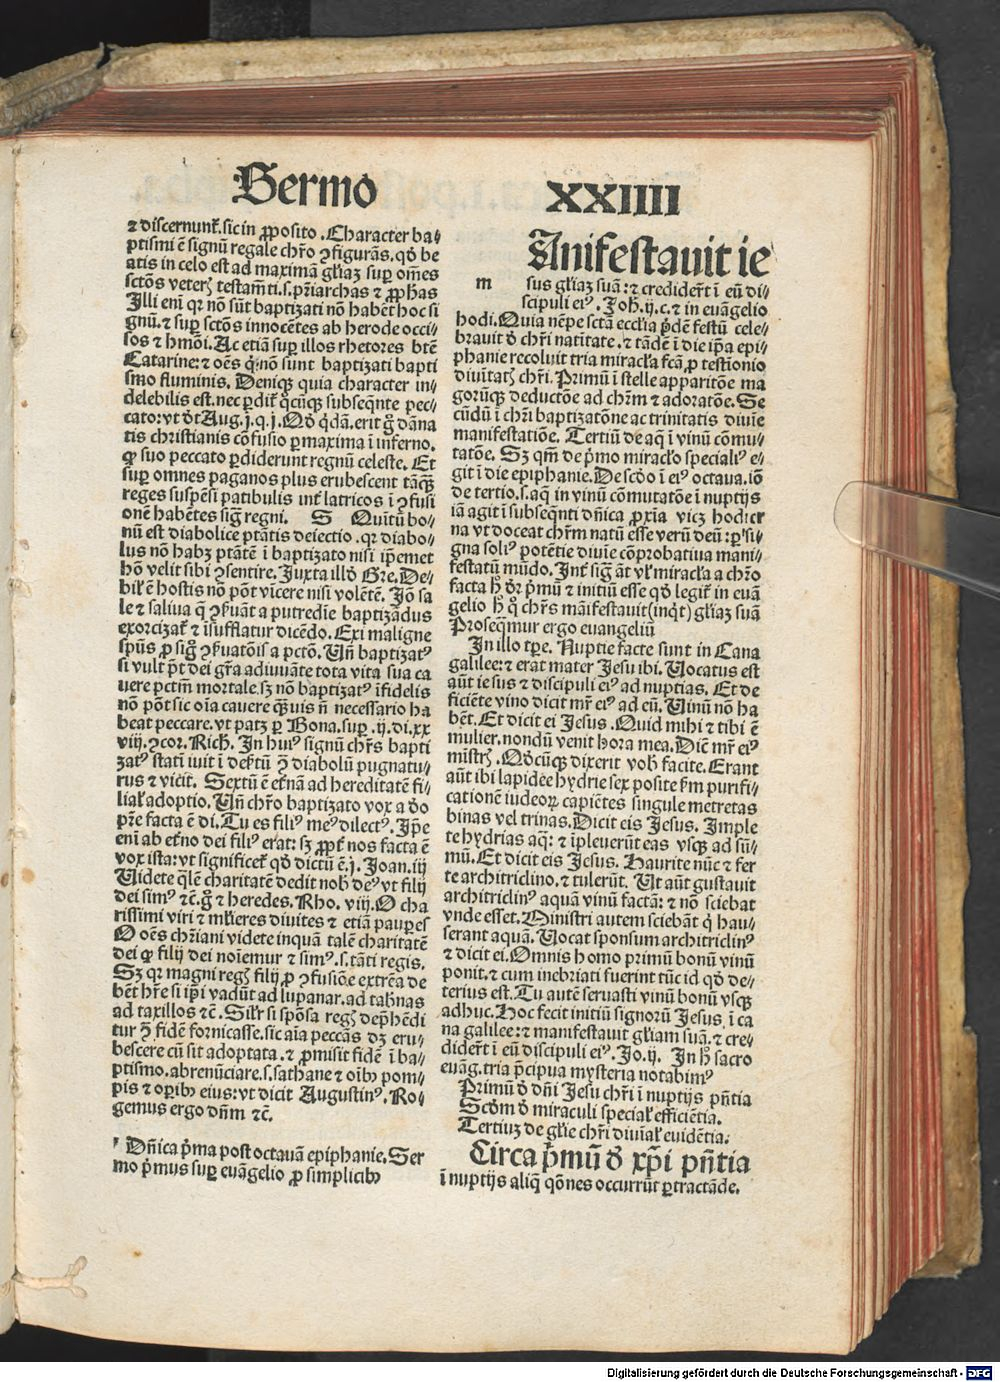 Sermo XXIIII
⁊ discernunt᷑. sic in ꝓposito. Character ba⸗
ptismi ē signū regale chr̄o ꝯfigurās, qď be
atis in celo est ad maximā gl̄iaʒ suꝑ om̄es
sctōs veterꝭ testam̄ti. s. pr̄iarchas ⁊ ꝓphas
Illi enī qr nō sūt baptizati nō habēt hoc si
gnū. ⁊ suꝑ sctōs innocētes ab herode occi⸗
sos ⁊ hmōi. Ac etiā suꝑ illos rhetores btē
Catarine: ⁊ oēs q̇ nō sunt baptizati bapti
smo fluminis. Deniqꝫ quia character in⸗
delebilis est. nec ꝑdit᷑ q̇cūqꝫ subseqn̄te pec⸗
cato: vt ďt Aug. j. q. j. Qď q̇dā. erit gͦ dāna
tis christianis cōfusio ꝑ maxima ī inferno.
qꝛ suo peccato ꝑdiderunt regnū celeste. Et
suꝑ omnes paganos plus erubescent tāqꝫ
reges suspēsi patibulis int᷑ latricos ī ꝯfusi
onē habētes sigͣ regni. S Quītū bo⸗
nū est diabolice ptātis deiectio. qꝛ diabo⸗
lus nō habꝫ ptātē ī baptizato nisi ip̄emet
hō velit sibi ꝯsentire. Juxta illď Gre. De⸗
bil̄ ē hostis nō pōt vīcere nisi volētē. Jō sa
le ⁊ saliua q̄ ꝯẜuāt a putredīe baptizādus
exorcizat᷑ ⁊ īsufflatur dicēdo. Exi maligne
spūs ꝓ sigͦ ꝯẜuatōis a pctō. Un̄ baptizatꝰ
si vult pōt dei gr̄a adiuuāte tota vita sua ca
uere pctm̄ mortale. sꝫ nō baptizatꝰ īfidelis
nō pōt sic oīa cauere q̄uis n̄ necessario ha
beat peccare. vt patꝫ ꝑ Bona. suꝑ. ij. di. xx
viij. ꝯcor. Rich̄. In huiꝰ signū chr̄s bapti
zatꝰ statī iuit ī det᷑tū ꝯ diabolū pugnatu⸗
rus ⁊ vicit. Sextū ē et᷑nā ad hereditatē fi⸗
lial̄ adoptio. Un̄ chr̄o baptizato vox a ďo
pr̄e facta ē di. Tu es filiꝰ meꝰ dilectꝰ. Ip̄e
enī ab et᷑no dei filiꝰ erat: sꝫ ꝓpt᷑ nos facta ē
vox ista: vt significet᷑ qď dictū ē. j. Joan. iij
Uidete q̄lē charitatē dedit nob̄ deꝰ vt filij
dei simꝰ ⁊c̄. gͦ ⁊ heredes. Rho. viij. O cha
rissimi viri ⁊ ml̄ieres diuites ⁊ etiā pauꝑes
O oēs chr̄iani videte inquā talē charitatē
dei qꝛ filij dei noīemur ⁊ simꝰ. s. tāti regis.
Sꝫ qꝛ magni regꝭ filij ꝓ ꝯfusiōe extrēa de
bēt hr̄e si ip̄i vadūt ad lupanar. ad tab̄nas
ad taxillos ⁊c̄. Sil̄r si spōsa regꝭ dep̄hēdi
tur ꝯ fidē fornicasse. sic aīa peccās dꝫ eru⸗
bescere cū sit adoptata. ⁊ ꝓmisit fidē ī ba⸗
ptismo. abrenūciare. s. sathane ⁊ oībꝫ pom⸗
pis ⁊ oꝑibꝫ eius: vt dicit Augustinꝰ. Ro⸗
gemus ergo dn̄m ⁊c̄.
Dn̄ica p̄ma post octauā epiphanie. Ser
mo p̄mus suꝑ euāgelio ꝓ simplicibꝫ
m Anifestauit ie
sus gl̄iaʒ suā: ⁊ credider̄t ī eū di⸗
scipuli eiꝰ. Joh̄. ij. c. ⁊ in euāgelio
hodi. Quia nēpe sctā eccl̄ia p̄dē festū cele⸗
brauit ď chr̄i natitate. ⁊ tādē ī die ip̄a epi⸗
phanie recoluit tria miracl̄a fcā ꝓ testīonio
diuītatꝭ chr̄i. Primū ī stelle apparitōe ma
gorūqꝫ deductōe ad chr̄m ⁊ adoratōe. Se
cūdū ī chr̄i baptizatōne ac trinitatis diuīe
manifestatiōe. Tertiū de aq̄ ī vinū cōmu⸗
tatōe. Sꝫ qm̄ de p̄mo miracl̄o specialiꝰ e⸗
git ī die epiphanie. De scďo ī eiꝰ octaua. iō
de tertio. s. aq̄ in vinū cōmutatōe ī nuptijs
iā agit ī subseqn̄ti dn̄ica ꝓxīa vicꝫ hodier
na vt doceat chr̄m natū esse verū deū: ꝑ si⸗
gna soliꝰ potētie diuīe cōprobatiua mani⸗
festatū mūdo. Int᷑ sigͣ āt vl̄ miracl̄a a chr̄o
facta hͦ ďr p̄mū ⁊ initiū esse qď legit᷑ in euā
gelio hͦ qͦ chr̄s māifestauit (inqͥt) gl̄iaʒ suā
Proseqͣmur ergo euangeliū
In illo tꝑe. Nuptie facte sunt in Cana
galilee: ⁊ erat mater Jesu ibi. Uocatus est
aūt iesus ⁊ discipuli eiꝰ ad nuptias. Et de
ficiēte vino dicit mr̄ eiꝰ ad eū. Uinū nō ha
bēt. Et dicit ei Jesus. Quid mihi ⁊ tibi ē
mulier. nondū venit hora mea. Dic̄ mr̄ eiꝰ
mīstrꝭ. Qďcūqꝫ dixerit vob̄ facite. Erant
aūt ibi lapidee hydrie sex posite ẜm purifi⸗
cationē iudeoꝝ capiētes singule metretas
binas vel trinas. Dicit eis Jesus. Imple
te hydrias aq̄: ⁊ īpleuerūt eas vsqꝫ ad sū⸗
mū. Et dicit eis Jesus. Haurite nūc ⁊ fer
te architriclino. ⁊ tulerūt. Ut aūt gustauit
architriclinꝰ aquā vinū factā: ⁊ nō sciebat
vnde esset. Ministri autem sciebāt q̇ hau⸗
serant aquā. Uocat sponsum architriclinꝰ
⁊ dicit ei. Omnis homo primū bonū vinū
ponit. ⁊ cum inebriati fuerint tūc id qď de⸗
terius est. Tu autē seruasti vinū bonū vsqꝫ
adhuc. Hoc fecit initiū signorū Jesus ī ca
na galilee: ⁊ manifestauit gl̄iam suā. ⁊ cre⸗
dider̄t ī eū discipuli eiꝰ. Jo. ij. In hͦ sacro
euāg. tria p̄cipua mysteria notabimꝰ
Primū ď dn̄i Jesu chr̄i ī nuptijs pn̄tia
Scďm ď miraculi special̄ efficiētia.
Tertiuʒ de gl̄ie chr̄i diuīal̄ euidētia.
Circa p̄mū ď xp̄i pn̄tia
ī nuptijs aliq̄ qōnes occurrūt ꝑtractāde.
Digitalisierung gefördert durch die Deutsche Forschungsgemeinschaft - DFG